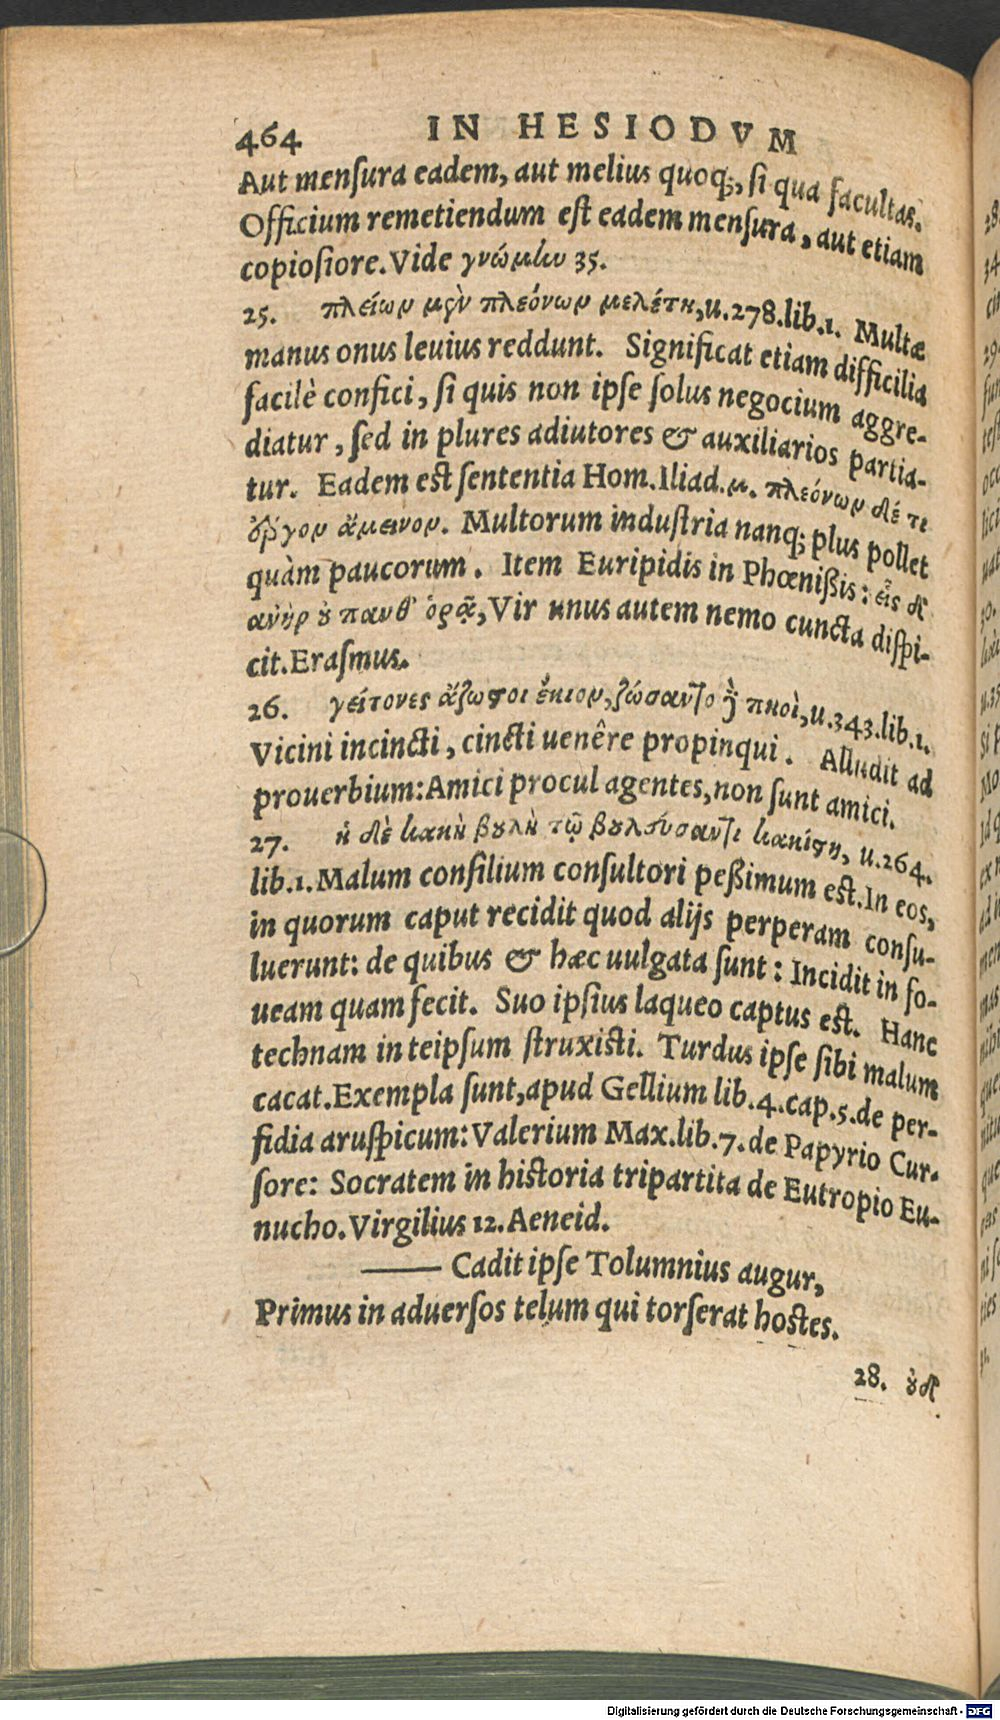 464 IN HESIODVM
Aut mensura eadem, aut melius quoq;, si qua facultas.
Officium remetiendum est eadem mensura, aut etiam
copiosiore. Vide γνώμην 35.
25. πλείων μὲν πλεόνων μελέτη, u.278.lib.1. Multæ
manus onus leuius reddunt. Significat etiam difficilia
facilè confici, si quis non ipse solus negocium aggre-
diatur, sed in plures adiutores & auxiliarios partia-
tur. Eadem est sententia Hom. Iliad. μ. πλεόνων δέ τι
ἔργον ἄμεινον. Multorum industria nanq; plus pollet
quàm paucorum. Item Euripidis in Phœnißis: εἷς δ'
ἀνὴρ οὐ πανθ' ὁρᾷ, Vir unus autem nemo cuncta dispi-
cit. Erasmus.
26. γείτονες ἄζωστοι ἔκιον, ζώσαντο δὲ πηοὶ, u.343.lib.1.
Vicini incincti, cincti uenêre propinqui. Alludit ad
prouerbium: Amici procul agentes, non sunt amici.
27. ἡ δὲ κακὴ βουλὴ τῷ βουλεύσαντι κακίστη, u.264.
lib.1. Malum consilium consultori peßimum est. In eos,
in quorum caput recidit quod alijs perperam consu-
luerunt: de quibus & hæc uulgata sunt: Incidit in fo-
ueam quam fecit. Suo ipsius laqueo captus est. Hanc
technam in teipsum struxisti. Turdus ipse sibi malum
cacat. Exempla sunt, apud Gellium lib.4.cap.5.de per-
fidia aruspicum: Valerium Max.lib.7.de Papyrio Cur-
sore: Socratem in historia tripartita de Eutropio Eu-
nucho. Virgilius 12. Aeneid.
—— Cadit ipse Tolumnius augur,
Primus in aduersos telum qui torserat hostes.
28. οὐδ'
Digitalisierung gefördert durch die Deutsche Forschungsgemeinschaft - DFG